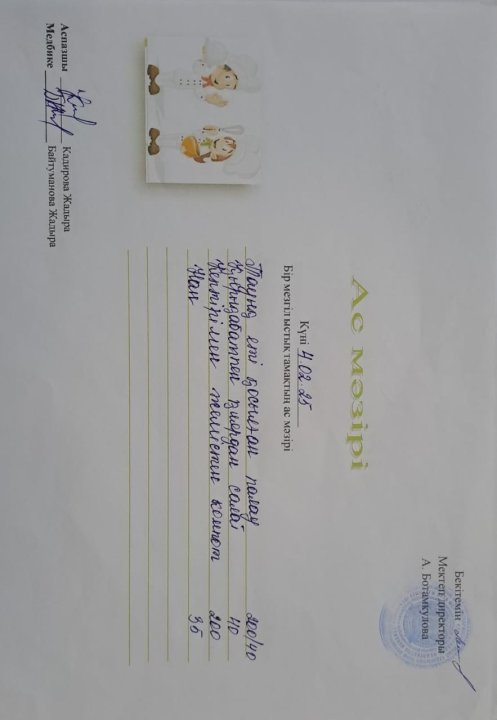 Бекітемін
Мектеп директоры
А. Ботамкулова
Ас мәзірі
Күні 4.02.25
Бір мезгіл ыстық тамақтың ас мәзірі
Тауық еті қосылған палау 200/40
Қырыққабатпен қиярдан салат 40
Кептірілген жемістен компот 200
Нан 35
Аспазшы Кадирова Жадыра
Медбике Байтуманова Жадыра